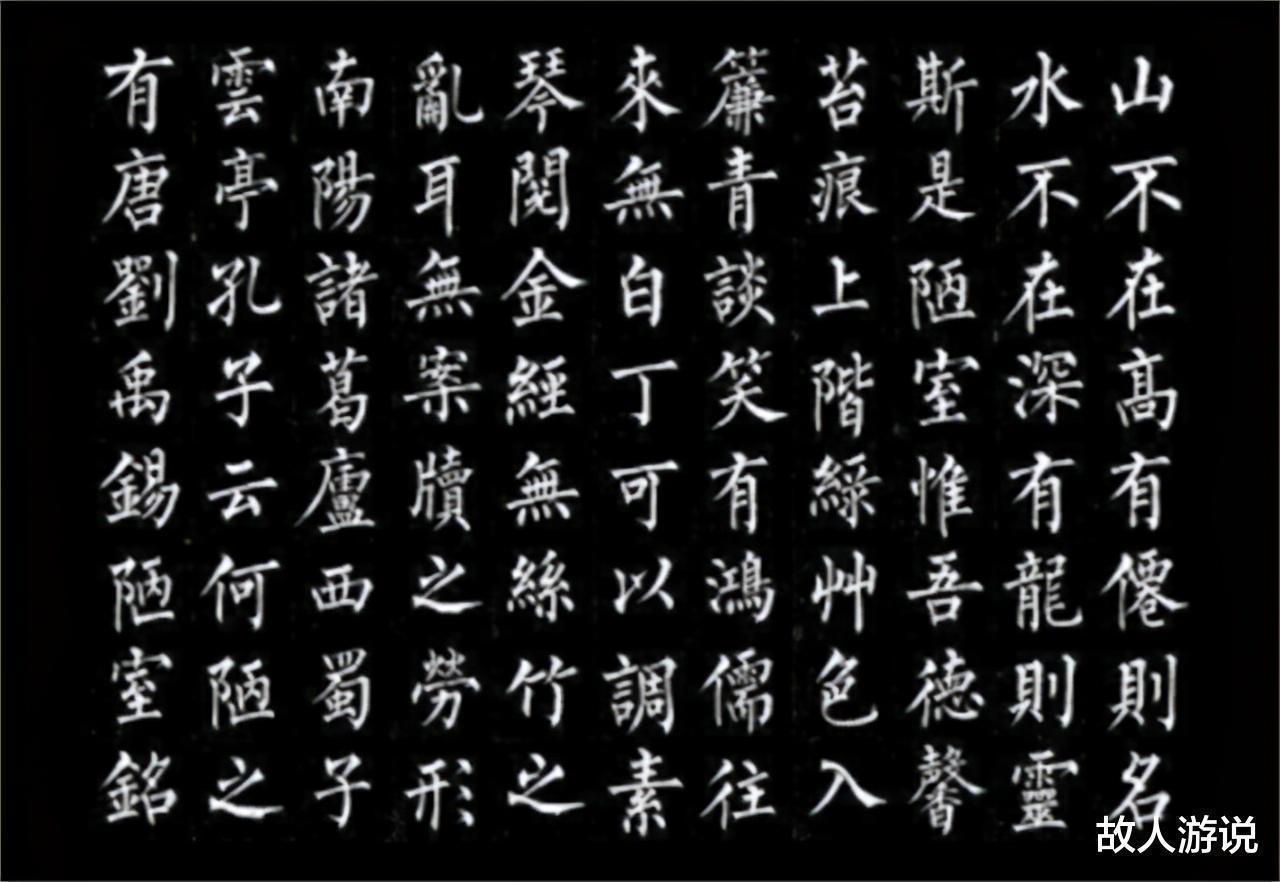 山不在高有僊則名
水不在深有龍則靈
斯是陋室惟吾德馨
苔痕上階綠艸色入
簾青談笑有鴻儒往
來無白丁可以調素
琴閱金經無絲竹之
亂耳無案牘之勞形
南陽諸葛廬西蜀子
雲亭孔子云何陋之
有唐劉禹錫陋室銘
故人游说